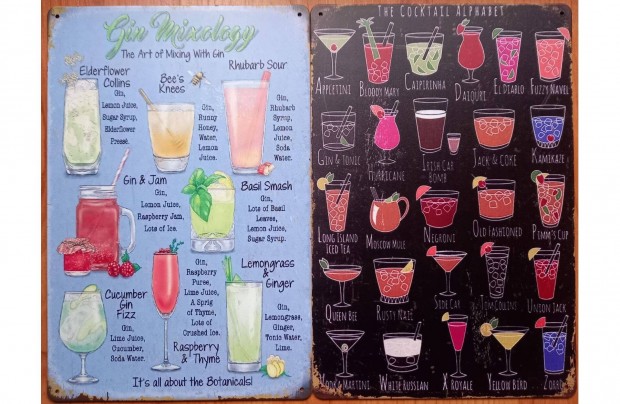 Gin Mixology
The Art of Mixing With Gin
Elderflower
Collins
Gin,
Lemon Juice,
Sugar Syrup,
Elderflower
Pressé.
Bee's
Knees
Gin,
Runny
Honey,
Water,
Lemon
Juice.
Rhubarb Sour
Gin,
Rhubarb
Syrup,
Lemon
Juice,
Soda
Water.
Gin & Jam
Gin,
Lemon Juice,
Raspberry Jam,
Lots of Ice.
Basil Smash
Gin,
Lots of Basil
Leaves,
Lemon Juice,
Sugar Syrup.
Cucumber
Gin
Fizz
Gin,
Lime Juice,
Cucumber,
Soda Water.
Gin,
Raspberry
Puree,
Lime Juice,
A Sprig
of Thyme,
Lots of
Crushed Ice.
Raspberry
& Thyme
Lemongrass
&
Ginger
Gin,
Lemongrass,
Ginger,
Tonic Water,
Lime.
It's all about the Botanicals!
The Cocktail Alphabet
Appletini
Bloody Mary
Caipirinha
Daiquiri
El Diablo
Fuzzy Navel
Gin & Tonic
Hurricane
Irish Car
Bomb
Jack & Coke
Kamikaze
Long Island
Iced Tea
Moscow Mule
Negroni
Old Fashioned
Pimm's Cup
Queen Bee
Rusty Nail
Side Car
Tom Collins
Union Jack
White Russian
X Royale
Yellow Bird